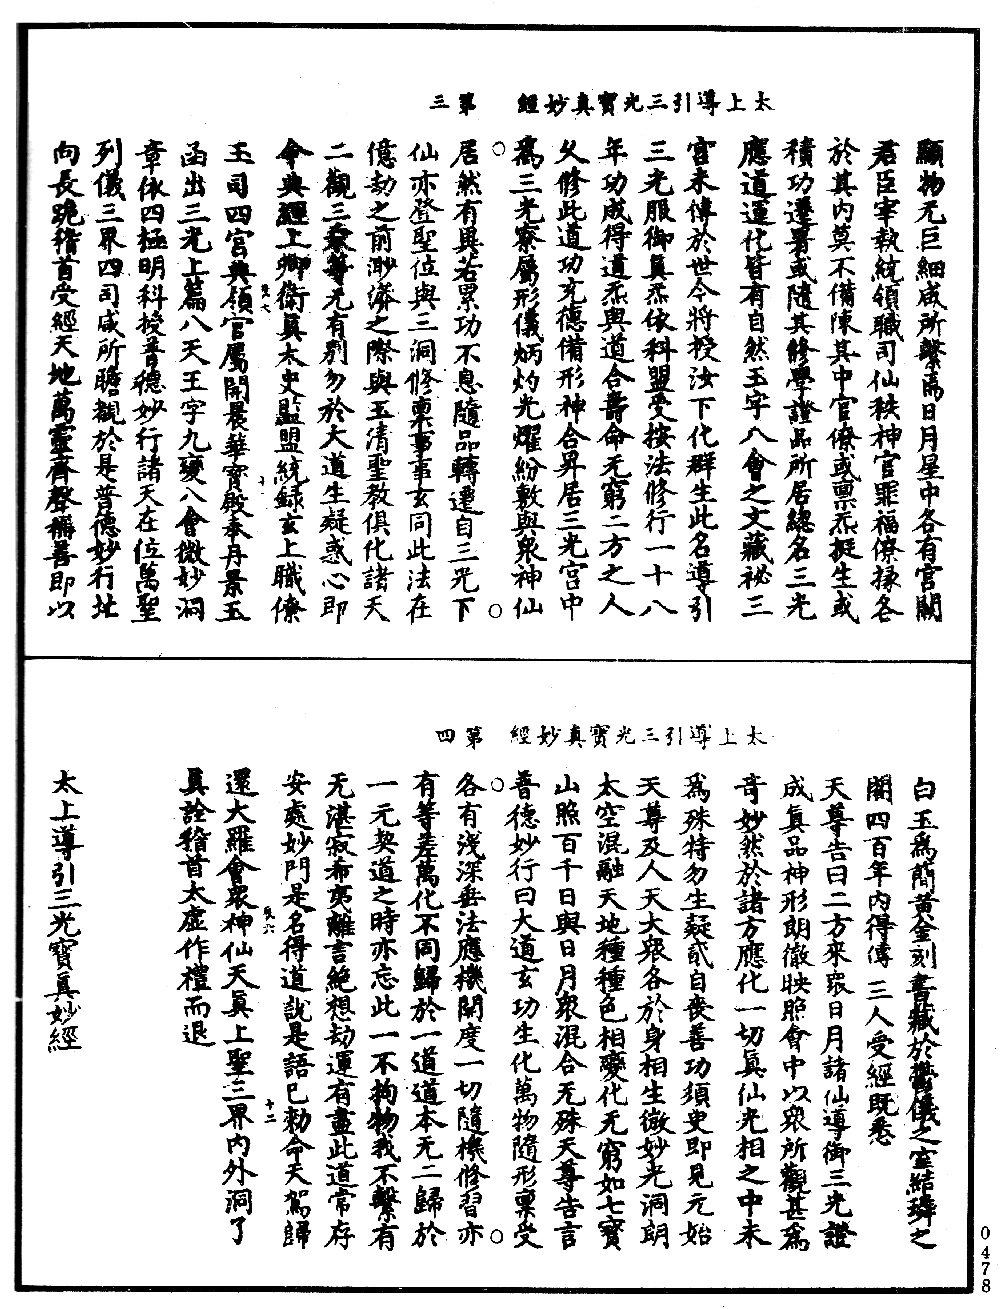 太上導引三光寶真妙經　第三
顯物无巨細咸所繫焉日月星中各有官闕
君臣宰執統領職司仙秩神官罪福僚掾各
於其內莫不備陳其中官僚或禀炁挺生或
積功遷署或隨其修學證品所居總名三光
應道運化皆有自然玉字八會之文藏祕三
宮未傳於世今將授汝下化群生此名導引
三光服御真炁依科盟受按法修行一十八
年功成得道炁與道合壽命无窮二方之人
父修此道功充德備形神合昇居三光宮中
爲三光寮屬形儀炳灼光耀紛敷與衆神仙
居然有異若累功不息隨品轉遷自三光下
仙亦登聖位與三洞修禀事事玄同此法在
億劫之前渺漭之際與玉清聖教俱化諸天
二觀三乘等无有別勿於大道生疑惑心即
命典經上卿衛真太史監盟統録玄上職僚
玉司四官典領官屬開晨華寶殿奉丹景玉
函出三光上篇八天王字九變八會微妙洞
章依四極明科授普德妙行諸天在位萬聖
列儀三界四司咸所瞻觀於是普德妙行北
向長跪稽首受經天地萬靈齊聲稱善即以
太上導引三光寶真妙經　第四
白玉爲簡黃金刻書藏於鬱儀之室結璘之
閣四百年內得傳三人受經既悉
天尊告曰二方來衆日月諸仙導御三光證
成真品神形朗徹映照會中以衆所觀甚爲
奇妙然於諸方應化一切真仙光相之中未
爲殊特勿生疑貳自喪善功須臾即見元始
天尊及人天大衆各於身相生微妙光洞朗
太空混融天地種種色相變化无窮如七寶
山照百千日與日月衆混合无殊天尊告言
普德妙行曰大道玄功生化萬物隨形禀受
各有淺深垂法應機開度一切隨機修習亦
有等差萬化不同歸於一道道本无二歸於
一元契道之時亦忘此一不拘物我不繫有
无湛寂希夷離言絕想劫運有盡此道常存
安處妙門是名得道說是語已勑命天駕歸
還大羅會衆神仙天真上聖三界內外洞了
真詮稽首太虛作禮而退
太上導引三光寶真妙經
0478